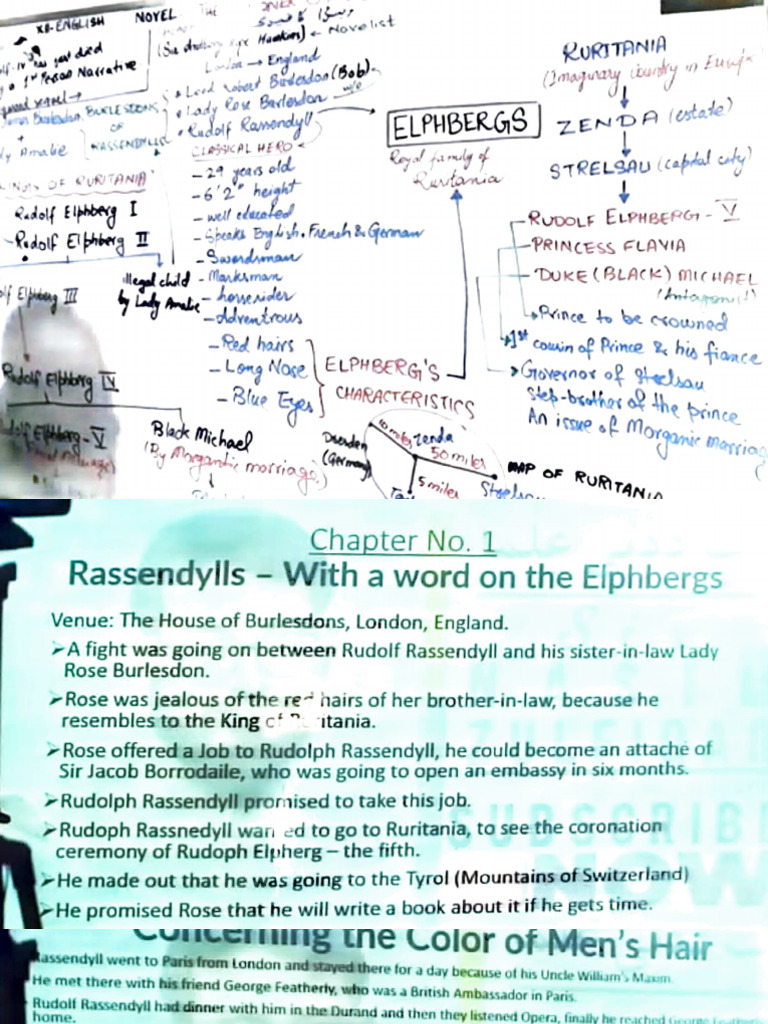 XII-ENGLISH NOVEL THE
(Sir Anthony Hope Hawkins) ← Novelist
London → England
1st Person Narrative
Lord Robert Burlesdon (Bob)
Lady Rose Burlesdon
Rudolf Rassendyll
BURLESDONS
OR
RASSENDYLLS
Amalie
CLASSICAL HERO
- 29 years old
- 6'2" height
- well educated
- Speaks English, French & German
- Swordsman
- Marksman
- horserider
- Adventrous
- Red hairs
- Long Nose
- Blue Eyes
ELPHBERG'S
CHARACTERISTICS
KINGS OF RURITANIA
Rudolf Elphberg I
- Rudolf Elphberg II
illegal child
by Lady Amalie
Elphberg III
Rudolf Elphberg IV
Elphberg - V
Black Michael
(By Morgantic marriage)
ELPHBERGS
Royal family of
Ruritania
RURITANIA
(Imaginary country in Europe)
ZENDA (estate)
STRELSAU (capital city)
RUDOLF ELPHBERG - V
PRINCESS FLAVIA
DUKE (BLACK) MICHAEL
(Antagonist)
Prince to be crowned
1st cousin of Prince & his fiance
Governor of Strelsau
Step-brother of the prince
An issue of Morganic Marriag
Dresden
(Germany)
10 miles
Zenda
50 miles
5 miles
Strelsau
MAP OF RURITANIA
Chapter No. 1
Rassendylls – With a word on the Elphbergs
Venue: The House of Burlesdons, London, England.
➤A fight was going on between Rudolf Rassendyll and his sister-in-law Lady
Rose Burlesdon.
➤Rose was jealous of the red hairs of her brother-in-law, because he
resembles to the King of Ruritania.
➤Rose offered a Job to Rudolph Rassendyll, he could become an attaché of
Sir Jacob Borrodaile, who was going to open an embassy in six months.
➤Rudolph Rassendyll promised to take this job.
➤Rudoph Rassnedyll wanted to go to Ruritania, to see the coronation
ceremony of Rudoph Elpherg – the fifth.
➤He made out that he was going to the Tyrol (Mountains of Switzerland)
➤He promised Rose that he will write a book about it if he gets time.
SUBSCRIBE
NOW
Concerning the Color of Men's Hair
Rassendyll went to Paris from London and stayed there for a day because of his Uncle William's Maxim.
He met there with his friend George Featherly, who was a British Ambassador in Paris.
Rudolf Rassendyll had dinner with him in the Durand and then they listened Opera, finally he reached George Featherly
home.